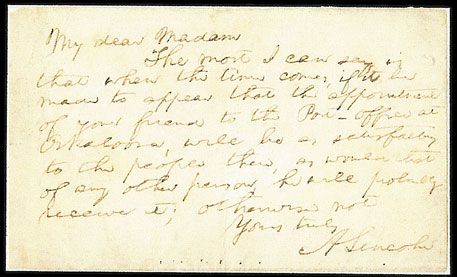 My dear Madam
The most I can say is
that when the time comes, if it be
made to appear that the appointment
of your friend to the Post-office at
Oskaloosa, will be as satisfactory
to the people there, as would that
of any other person, he will probably
receive it; otherwise not
Yours truly
A Lincoln